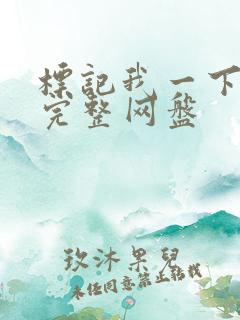 標記我一下
完整网盤
玖沐果兒
未经同意禁止转载